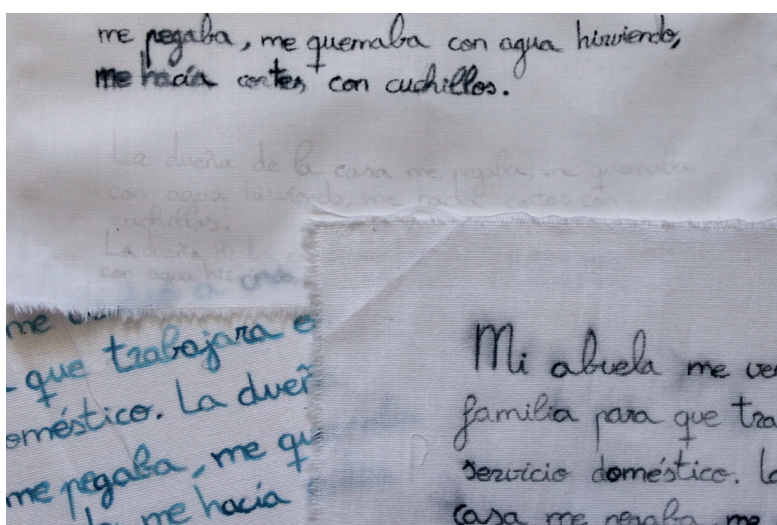 me pegaba, me quemaba con agua hirviendo,
me hacía cortes con cuchillos.
La dueña de la casa me pegaba, me quemaba
con agua hirviendo, me hacía cortes con
cuchillos.
La dueña de la
con agua
me
que trabajara
doméstico. La dueñ
me pegaba, me qu
me hacía
Mi abuela me ve
familia para que tra
servicio doméstico. La
casa me pegaba, me